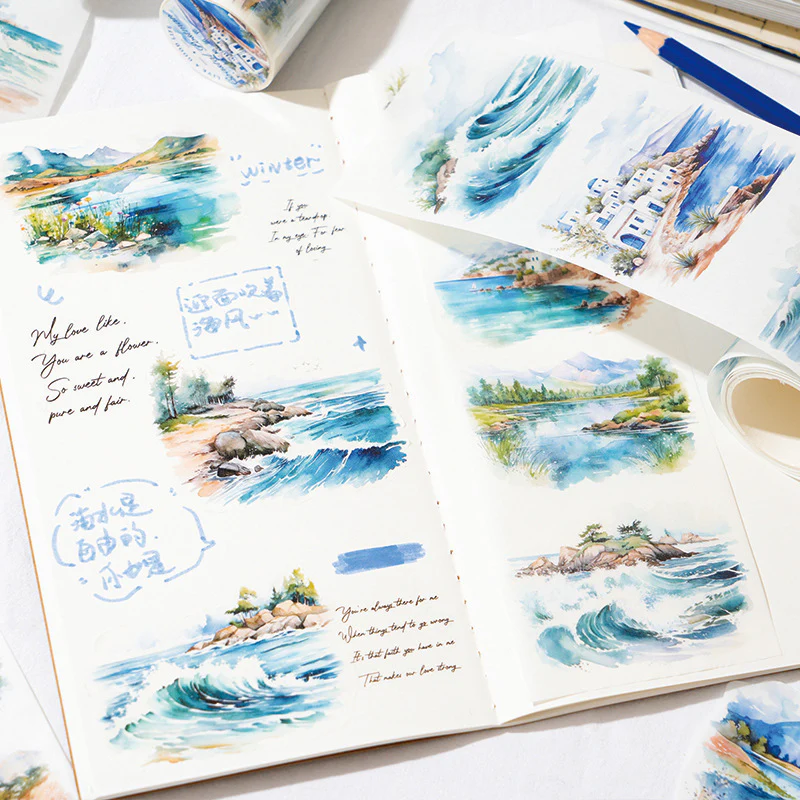 "winter"
If you
were a teardrop
In my eye. For fear
of losing.
迎面吹着
海风~~
My love like.
You are a flower.
So sweet and.
pure and fair.
海水是
自由的.
你也是
You're always there for me
When things tend to go wrong
It's that faith you have in me
That makes our love strong.